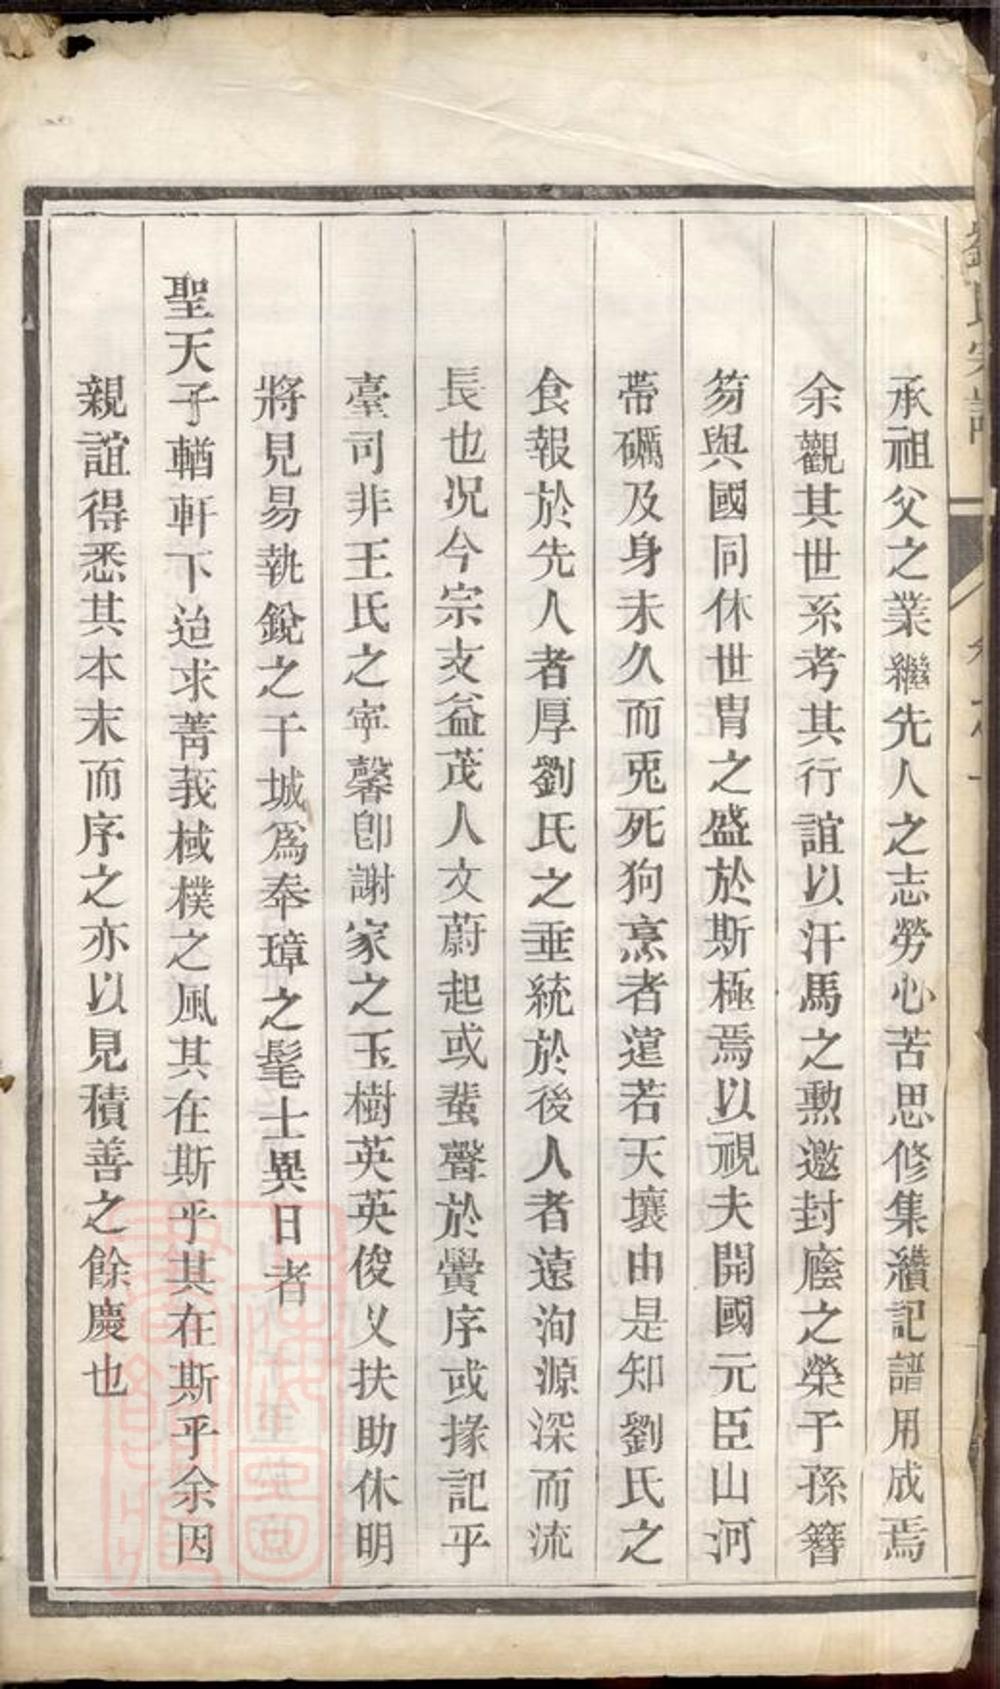 承祖父之業繼先人之志勞心苦思修集纘記譜用成焉
余觀其世系考其行誼以汗馬之勲邀封廕之榮子孫簪
笏與國同休世胄之盛於斯極焉以視夫開國元臣山河
帶礪及身未久而兎死狗烹者蓫若天壤由是知劉氏之
食報於先人者厚劉氏之垂統於後人者遠洵源深而流
長也况今宗支益茂人文蔚起或蜚聲於黌序或掾記乎
臺司非王氏之寜馨卽謝家之玉樹英英俊乂扶助休明
將見易執銳之干城爲奉璋之髦士異日者
聖天子輶軒下逮求菁莪棫樸之風其在斯乎其在斯乎余因
親誼得悉其本末而序之亦以見積善之餘慶也
劉氏宗譜
卷之一
上海圖書館藏